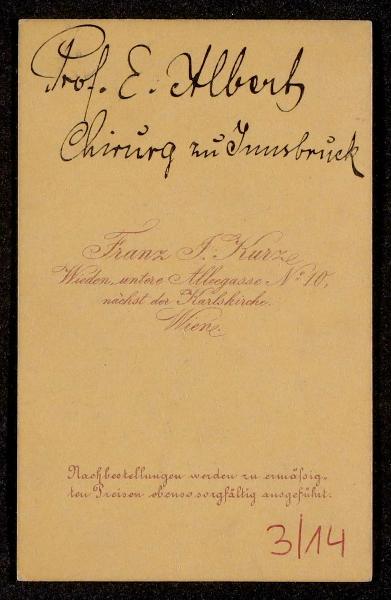 Prof. E. Albert
Chirurg zu Innsbruck
Franz J. Kurz
Wieden, untere Alleegasse No. 10,
nächst der Karlskirche.
Wien.
Nachbestellungen werden zu ermässig-
ten Preisen ebenso sorgfältig ausgeführt.
3/14